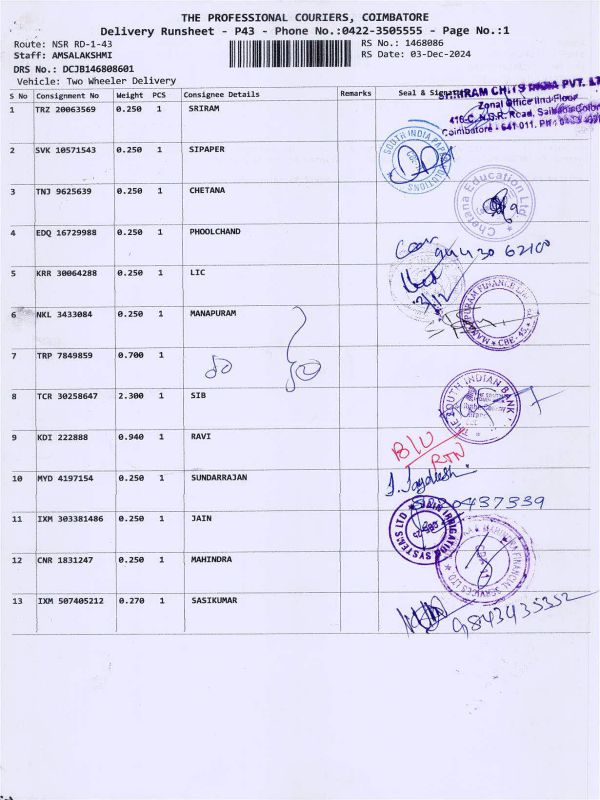 THE PROFESSIONAL COURIERS, COIMBATORE
Delivery Runsheet - P43 - Phone No.:0422-3505555 - Page No.:1
Route: NSR RD-1-43
RS No.: 1468086
Staff: AMSALAKSHMI
RS Date: 03-Dec-2024
DRS No.: DCJB146808601
Vehicle: Two Wheeler Delivery
S No Consignment No Weight PCS Consignee Details Remarks Seal &
1 TRZ 20063569 0.250 1 SRIRAM
SHRIRAM CHITS INDIA PVT. LT
Zonal Office IInd Floor
416-C, N.G.R. Road, Saibaba Colon
Coimbatore - 641 011.
2 SVK 10571543 0.250 1 SIPAPER
SOUTH INDIA PAPER SOLUTIONS
3 TNJ 9625639 0.250 1 CHETANA
Chetana Education Ltd
4 EDQ 16729988 0.250 1 PHOOLCHAND
94430 62100
5 KRR 30064288 0.250 1 LIC
3/12
6 NKL 3433084 0.250 1 MANAPURAM
MANAPPURAM FINANCE
CBE-45
7 TRP 7849859 0.700 1
8 TCR 30258647 2.300 1 SIB
THE SOUTH INDIAN BANK
9 KDI 222888 0.940 1 RAVI
RTN
10 MYD 4197154 0.250 1 SUNDARRAJAN
J. Jaydeesh
437339
11 IXM 303381486 0.250 1 JAIN
JAIN IRRIGATION SYSTEMS LTD
12 CNR 1831247 0.250 1 MAHINDRA
MAHINDRA FINANCIAL SERVICES LTD
13 IXM 507405212 0.270 1 SASIKUMAR
9843435352